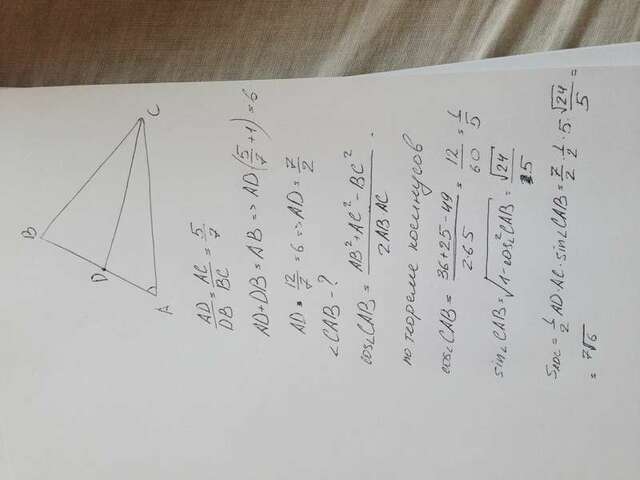 B
D
A
C
AD/DB = AC/BC = 5/7
AD+DB=AB => AD(5/7+1)=6
AD = 12/7 = 6 => AD = 7/2
∠CAB - ?
cos∠CAB = (AB²+AC²-BC²)/(2AB·AC).
по теореме косинусов
cos∠CAB = (36+25-49)/(2·6·5) = 12/60 = 1/5
sin∠CAB = √(1-cos²∠CAB) = √24/5
S_ADC = 1/2 AD·AC·sin∠CAB = 7/2·1/2·5·√24/5 =
= 7√6/2